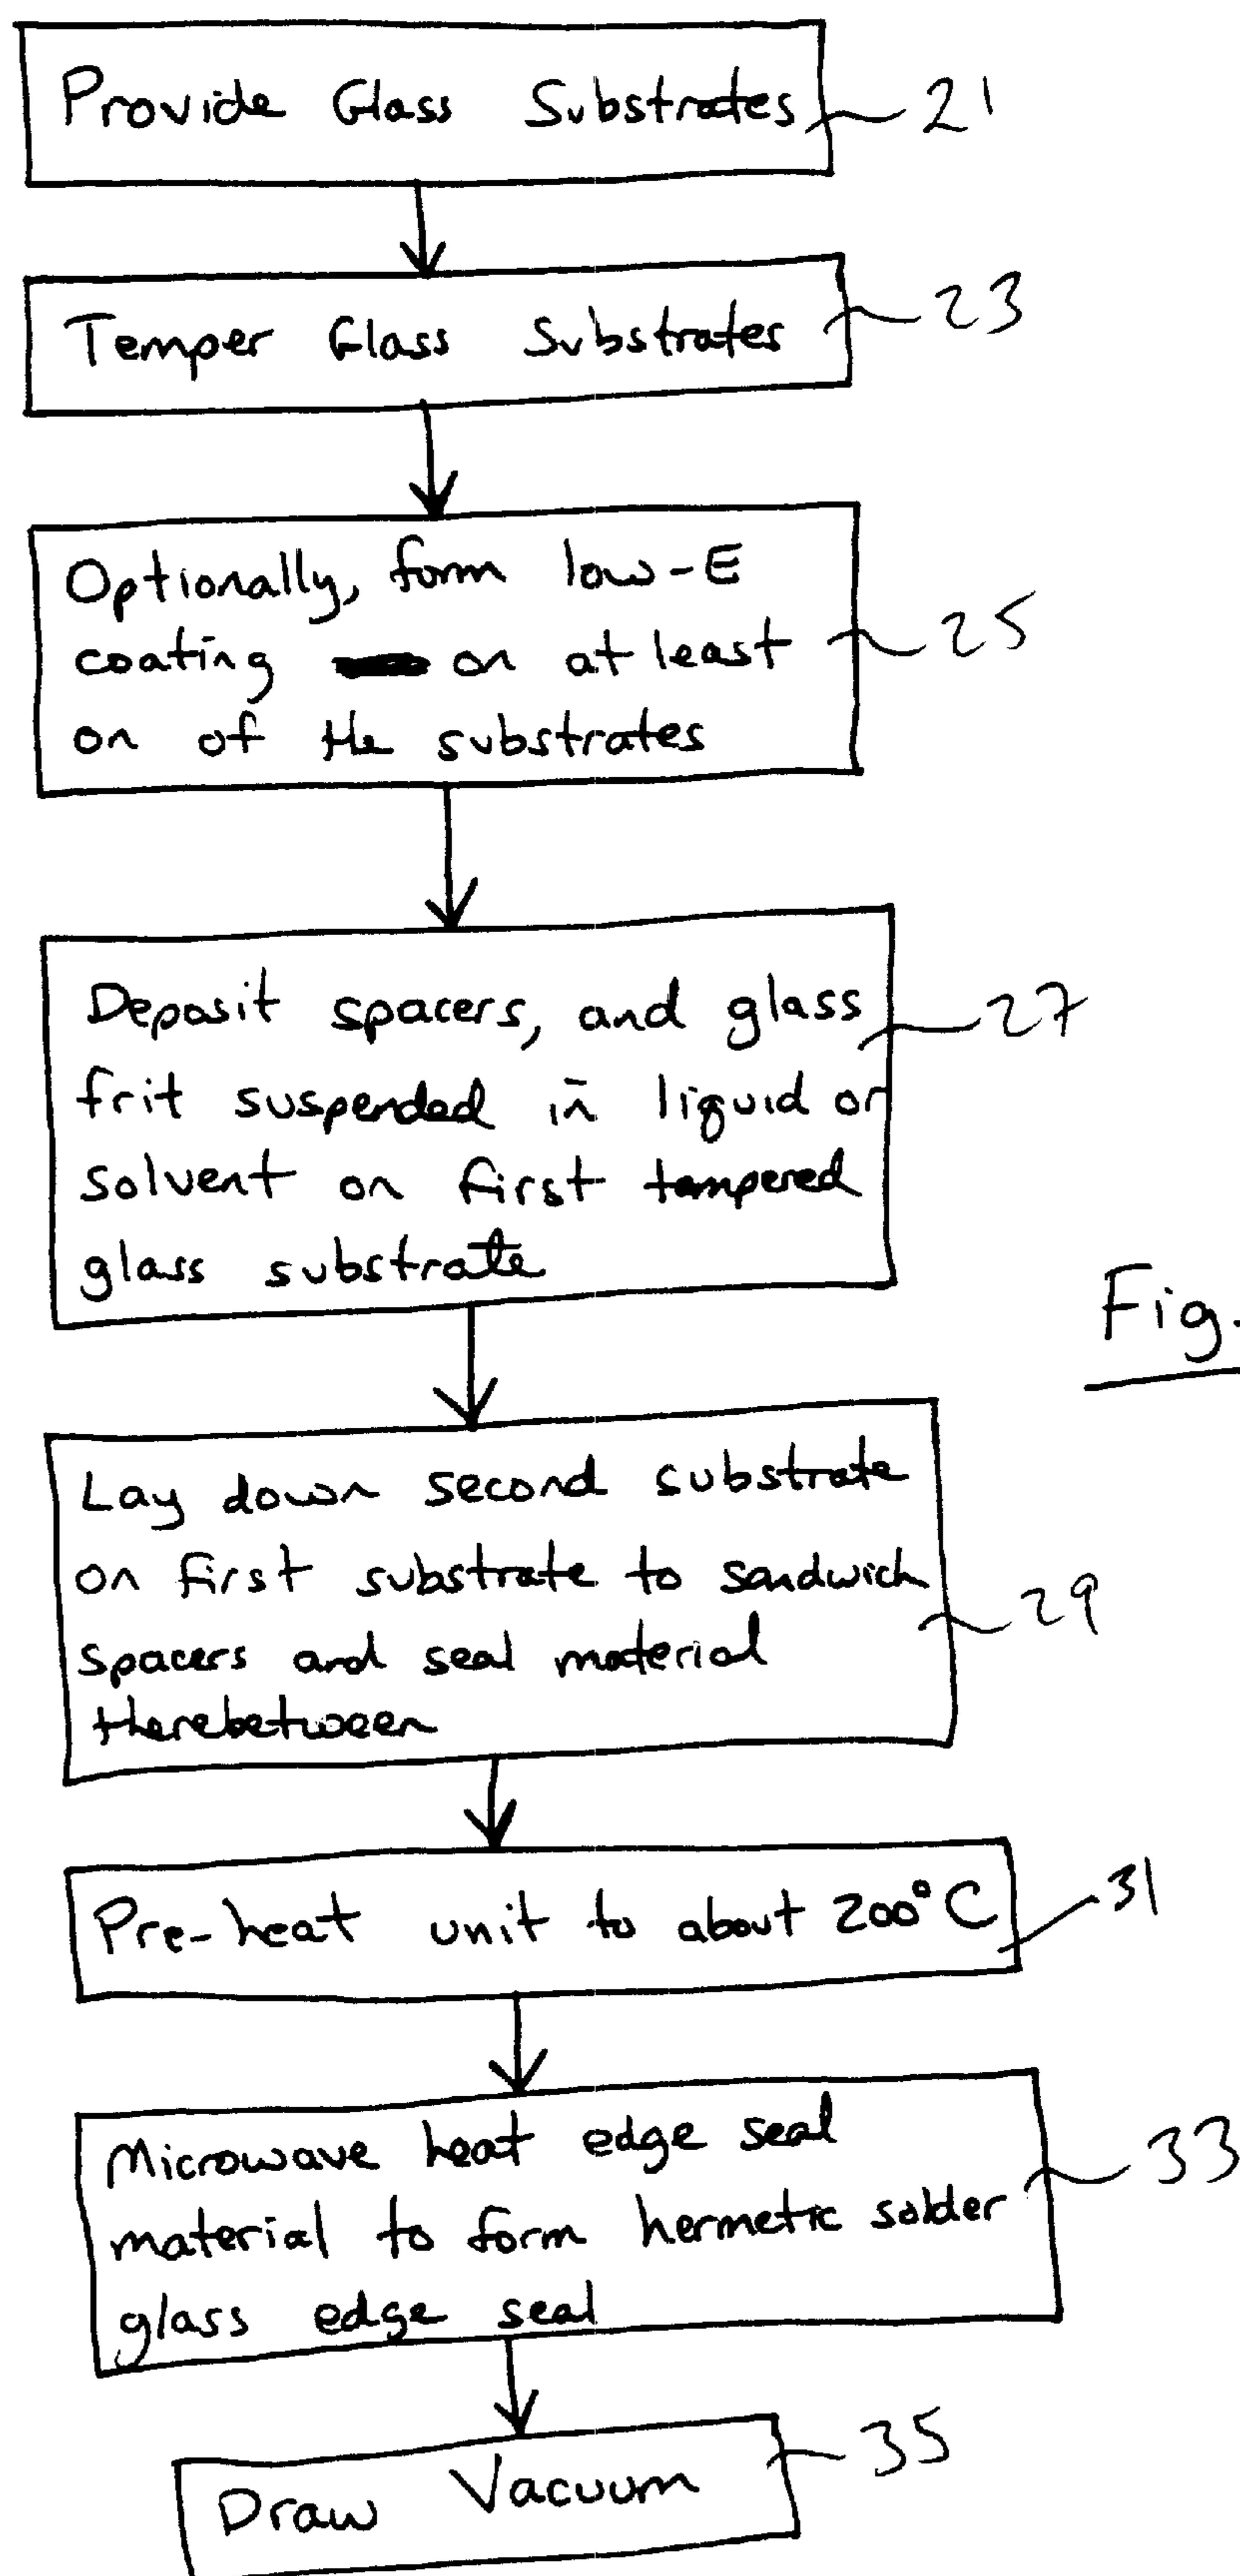 Provide Glass Substrates 21
Temper Glass Substrates 23
Optionally, form low-E
coating on at least 25
on of the substrates
Deposit spacers, and glass 27
frit suspended in liquid or
solvent on first tempered
glass substrate
Fig.
Lay down second substrate
on first substrate to sandwich 29
spacers and seal material
therebetween
Pre-heat unit to about 200°C 31
Microwave heat edge seal 33
material to form hermetic solder
glass edge seal
Draw Vacuum 35